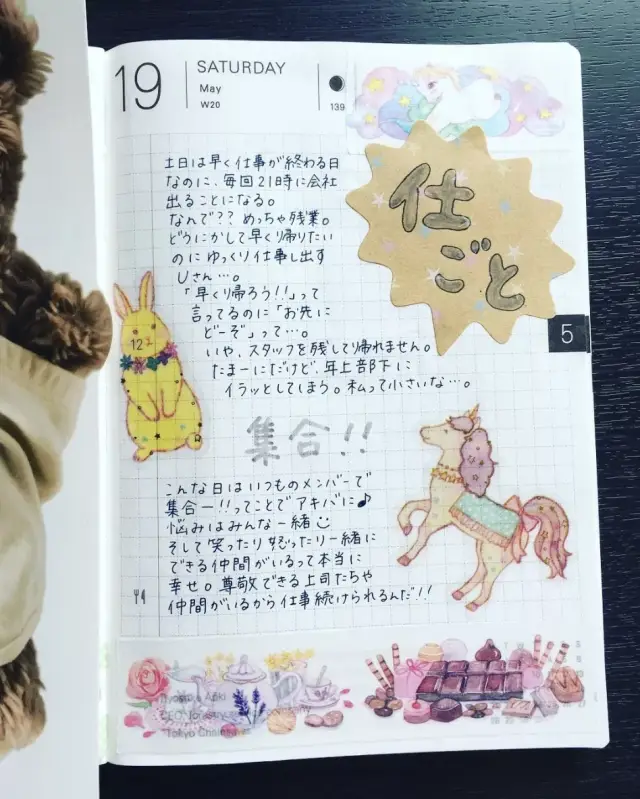 19
SATURDAY
May
W20
139
仕
ごと
土日は早く仕事が終わる日
なのに、毎回21時に会社
出ることになる。
なんで?? めっちゃ残業。
どうにかして早く帰りたい
のにゆっくり仕事し出す
Uさん…。
「早く帰ろう!!」って
言ってるのに「お先に
どーぞ」って…。
いや、スタッフを残して帰れません。
たまーにだけど、年上部下に
イラッとしてしまう。私って小さいな…。
12
5
集合!!
こんな日はいつものメンバーで
集合ー!!ってことでアキバに♪
悩みはみんな一緒
そして笑ったり怒ったり一緒に
できる仲間がいるって本当に
幸せ。尊敬できる上司たちや
仲間がいるから仕事続けられるんだ!!